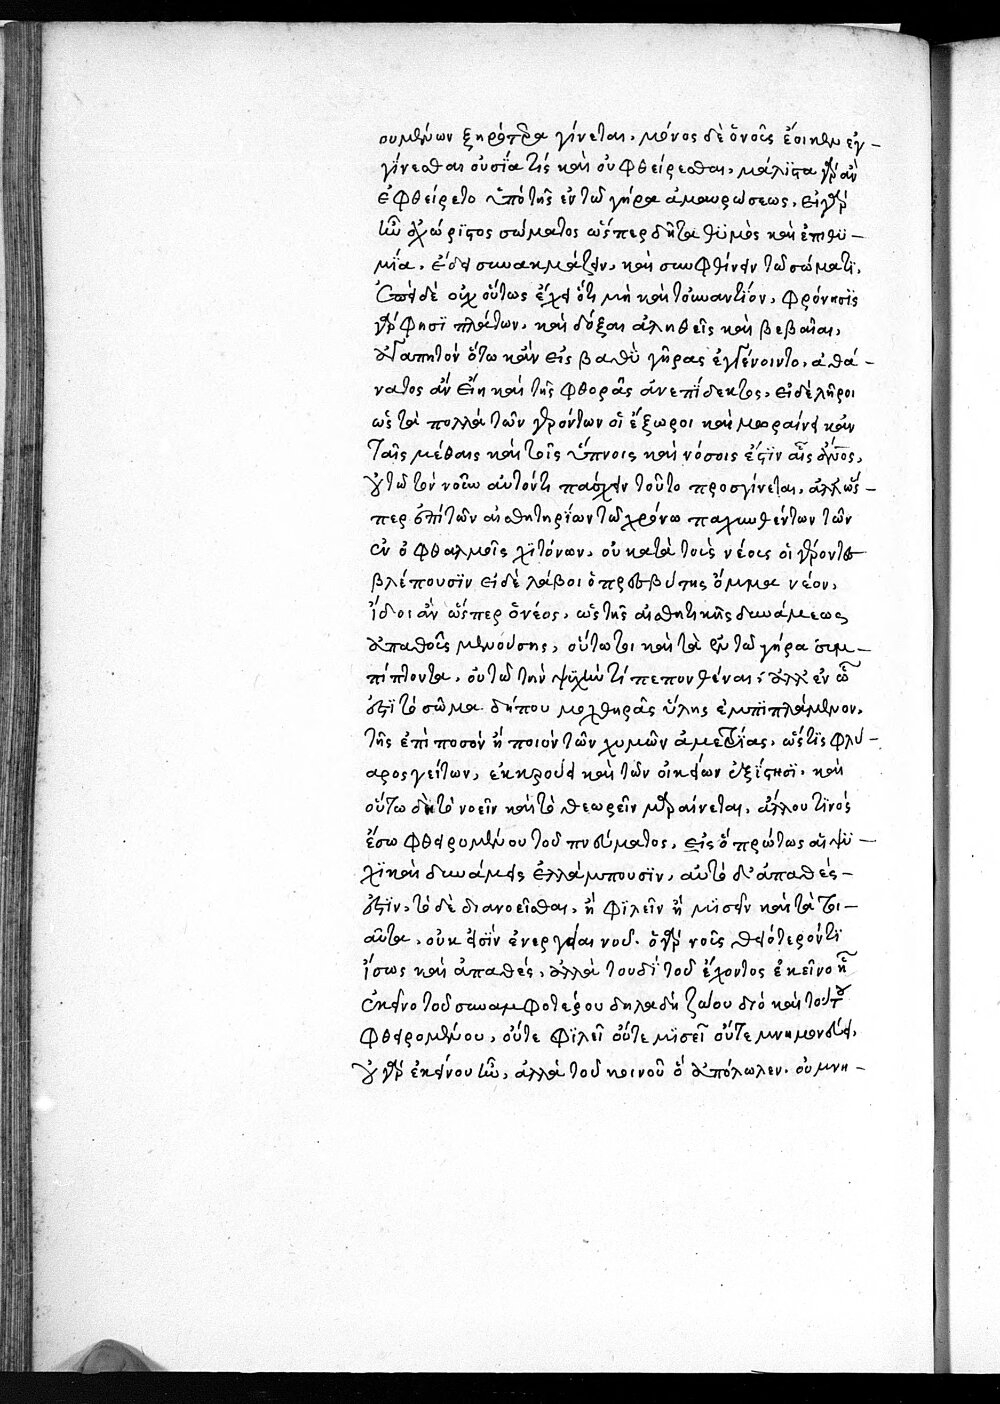 ουμένων ξηρότερα γίνεται. μόνος δὲ ὁ νοῦς ἔοικεν ἐγ-
γίνεσθαι οὐσία τὶς καὶ οὐ φθείρεσθαι. μάλιστα γὰρ ἂν
ἐφθείρετο ὑπὸ τῆς ἐν τῷ γήρα ἀμαυρώσεως. εἰ γὰρ
ἦν ἀχώριστος σώματος ὥσπερ δῆτα θυμὸς καὶ ἐπιθυ-
μία. ἔδει συνακμάζειν. καὶ συμφθίνειν τῷ σώματι.
δὲ οὐχ οὕτως ἔχει ὅτι μὴ καὶ τοὐναντίον. φρόνησις
γάρ φησι πλάτων. καὶ δόξαι ἀληθεῖς καὶ βέβαιαι.
ἀγαπητὸν ὅτω κἂν εἰς βαθὺ γῆρας ἐγγένοιντο. ἀθά-
νατος ἂν εἴη καὶ τῆς φθορᾶς ἀνεπίδεκτος. εἰ δὲ λῆροι
ὡς τὰ πολλὰ τῶν γερόντων οἱ ἔξωροι καὶ μωραίνει κἂν
ταῖς μέθαις καὶ τοῖς ὕπνοις καὶ νόσοις ἐστὶν οἷς ὁ νοῦς.
οὐ τῷ τὸν νοῦν αὐτόν τι πάσχειν τοῦτο προσγίνεται. ἀλλ' ὥσ-
περ ἐπὶ τῶν αἰσθητηρίων τῷ χρόνω παχυνθέντων τῶν
ἐν ὀφθαλμοῖς χιτόνων. οὐ κατὰ τοὺς νέους οἱ γέροντες
βλέπουσιν εἰ δὲ λάβοι ὁ πρεσβύτης ὄμμα νέον.
ἴδοι ἂν ὥσπερ ὁ νέος. ὡς τῆς αἰσθητικῆς δυνάμεως
ἀπαθοῦς μενούσης. οὕτω τοι καὶ τὰ ἐν τῷ γήρα συμ-
πίπτοντα. οὐ τῷ τὴν ψυχήν τι πεπονθέναι. ἀλλ' ἐν ᾧ
ἐστι τὸ σῶμα δήπου μοχθηρᾶς ὕλης ἐμπιπλάμενον.
τῆς ἐπὶ ποσὸν ἢ ποιὸν τῶν χυμῶν ἀμετρίας. ὥς τις φλύ-
αρος γείτων. ἐκκρούει καὶ τῶν οἰκείων ἐξίστησι. καὶ
οὕτω δὴ τὸ νοεῖν καὶ τὸ θεωρεῖν μαραίνεται. ἄλλου τινός
ἔσω φθειρομένου τοῦ πνεύματος. εἰς ὃ πρώτως αἱ ψυ-
χικαὶ δυνάμεις ἐλλάμπουσιν. αὐτὸ δ' ἀπαθές-
ἐστιν. τὸ δὲ διανοεῖσθαι. ἢ φιλεῖν ἢ μισεῖν καὶ τὰ τοι-
αῦτα. οὐκ εἰσὶν ἐνέργειαι νοῦ. ὁ γὰρ νοῦς θειότερόν τι
ἴσως καὶ ἀπαθές. ἀλλὰ τουδὶ τοῦ ἔχοντος ἐκεῖνο ἢ
ἐκεῖνο τοῦ συναμφοτέρου δηλαδὴ ζώου διὸ καὶ τούτου
φθειρομένου. οὔτε φιλεῖ οὔτε μισεῖ οὔτε μνημονεύει.
οὐ γὰρ ἐκείνου ἦν. ἀλλὰ τοῦ κοινοῦ ὃ ἀπόλωλεν. οὐ μνη-